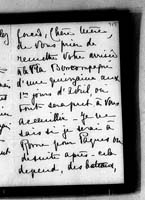 Gérard, Chère Mère,
de vous prier de
remettre votre arrivée
à la Villa Boncompagni
d'une quinzaine aux
1ers jours d'Avril, où
tout sera prêt à vous
accueillir - je ne
sais si je serai à
Rome pour Pâques ou
de suite après - cela
dépend, des bateaux,